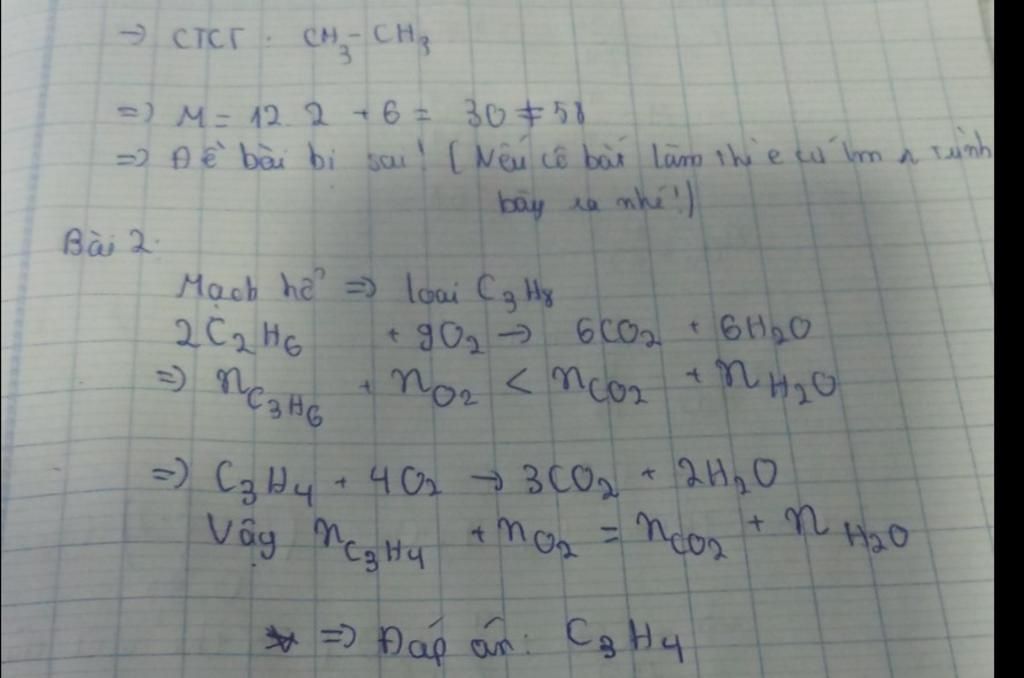 → CTCT : CH₃ - CH₃
=> M = 12 . 2 + 6 = 30 ≠ 58
=> Đề bài bị sai! (Nếu cô bắt làm thì e cứ trình
bày ra nhé!)
Bài 2.
Mạch hở => loại C₃H₈
2C₂H₆ + 9O₂ → 6CO₂ + 6H₂O
=> n C₃H₆ + n O₂ < n CO₂ + n H₂O
=> C₃H₄ + 4O₂ → 3CO₂ + 2H₂O
Vậy n C₃H₄ + n O₂ = n CO₂ + n H₂O
=> Đáp án: C₃H₄